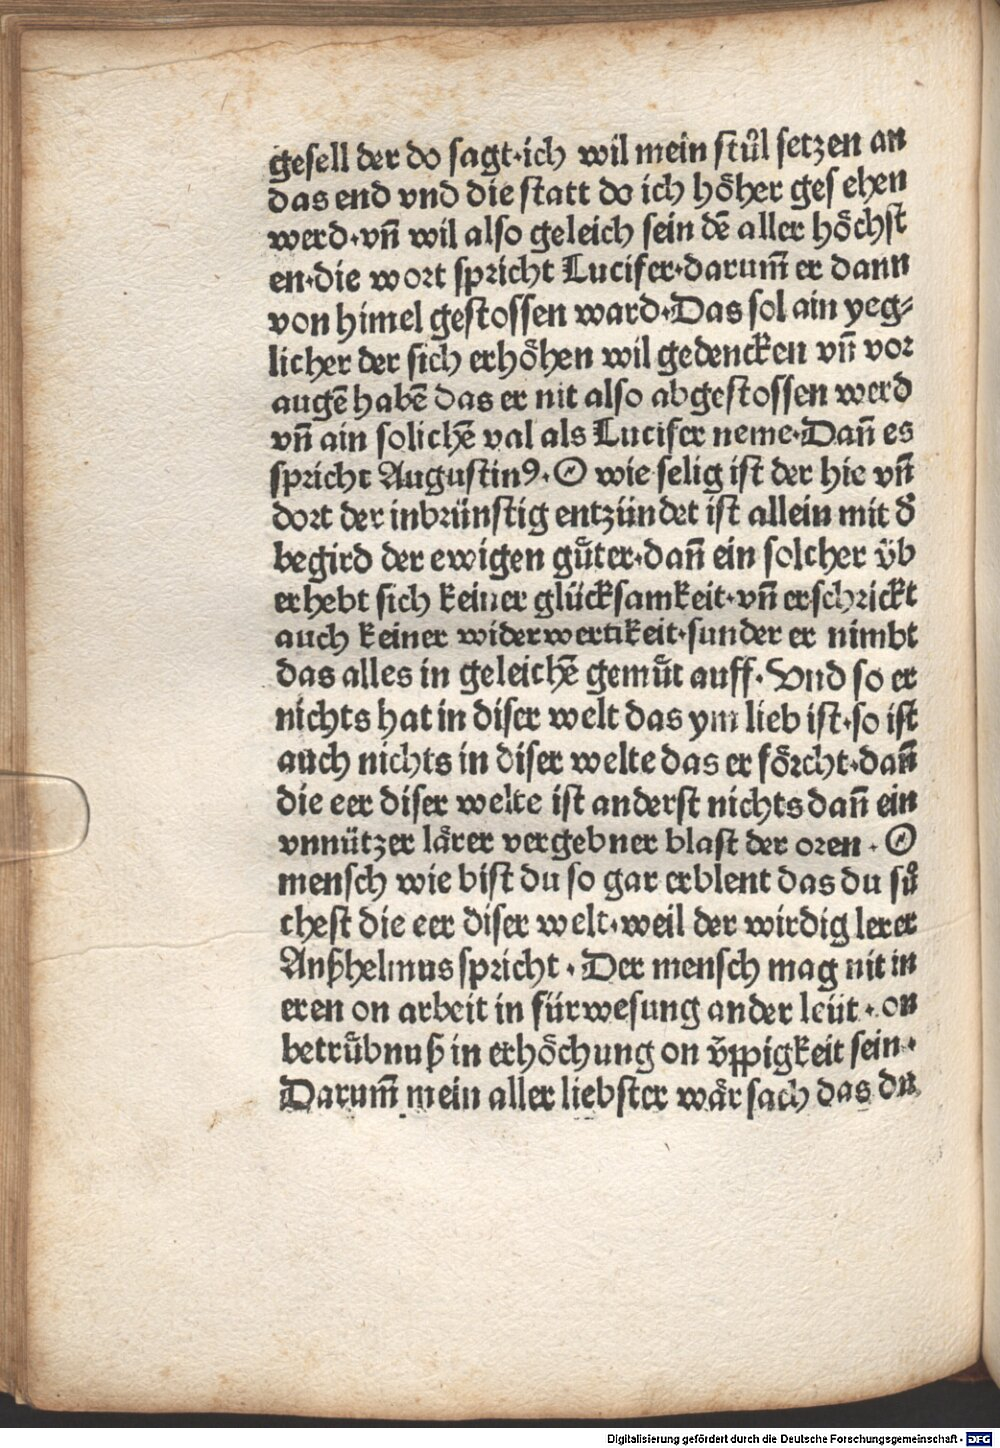 gesell der do sagt·ich wil mein stůl setzen an
das end vnd die statt do ich höher ges ehen
werd·vn̄ wil also geleich sein dē aller höchst
en·die wort spricht Lucifer·darum̄ er dann
von himel gestossen ward·Das sol ain yeg⸗
licher der sich erhöhen wil gedencken vn̄ vor
augē habē das er nit also abgestossen werd
vn̄ ain solichē val als Lucifer neme·Dan̄ es
spricht Augustinꝰ·O wie selig ist der hie vn̄
dort der inbrünstig entzündet ist allein mit d̕
begird der ewigen gůter·dan̄ ein solcher üb
erhebt sich keiner glücksamkeit·vn̄ erschrickt
auch keiner widerwertikeit·sunder er nimbt
das alles in geleichē gemůt auff·Vnd so er
nichts hat in diser welt das ym lieb ist·so ist
auch nichts in diser welte das er förcht·dan̄
die eer diser welte ist anderst nichts dan̄ ein
vnnützer lärer vergebner blast der oren·O
mensch wie bist du so gar erblent das du sů
chest die eer diser welt·weil der wirdig lerer
Anßhelmus spricht·Der mensch mag nit in
eren on arbeit in fürwesung ander leüt·on
betrůbnuß in erhöchung on v̈ppigkeit sein·
Darum̄ mein aller liebster wär sach das du
Digitalisierung gefördert durch die Deutsche Forschungsgemeinschaft - DFG